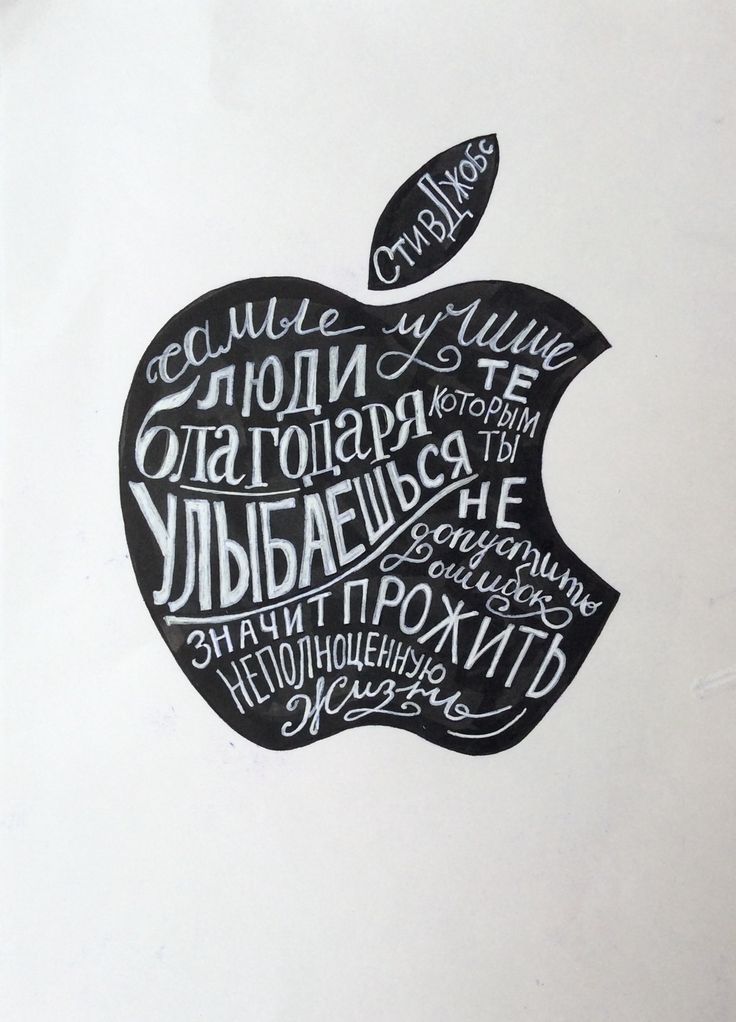 Стив Джобс
самые лучшие
люди те
благодаря которым
ты
улыбаешься
не
допустить
ошибок
значит прожить
неполноценную
жизнь